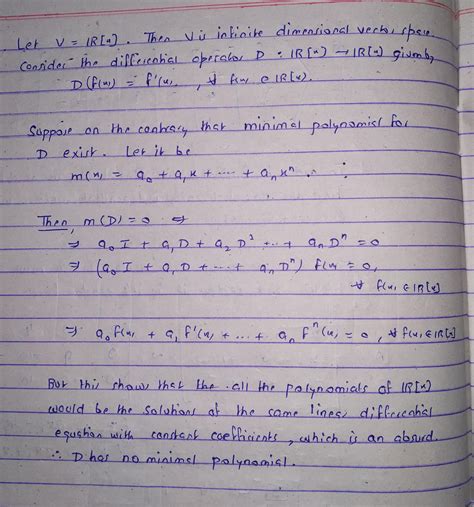 Let V = IR[x]. Then V is infinite dimensional vector space.
Consider the differential operator D : IR[x] → IR[x] given by
D(f(x)) = f'(x), ∀ f(x) ∈ IR[x].
Suppose on the contrary that minimal polynomial for
D exist. Let it be
m(x) = a₀ + a₁x + ... + aₙxⁿ.
Then, m(D) = 0 ⇒
⇒ a₀I + a₁D + a₂D² + ... + aₙDⁿ = 0
⇒ (a₀I + a₁D + ... + aₙDⁿ) f(x) = 0,
∀ f(x) ∈ IR[x]
⇒ a₀f(x) + a₁f'(x) + ... + aₙfⁿ(x) = 0, ∀ f(x) ∈ IR[x]
But this shows that the all the polynomials of IR[x]
would be the solutions of the same linear differential
equation with constant coefficients, which is an absurd.
∴ D has no minimal polynomial.